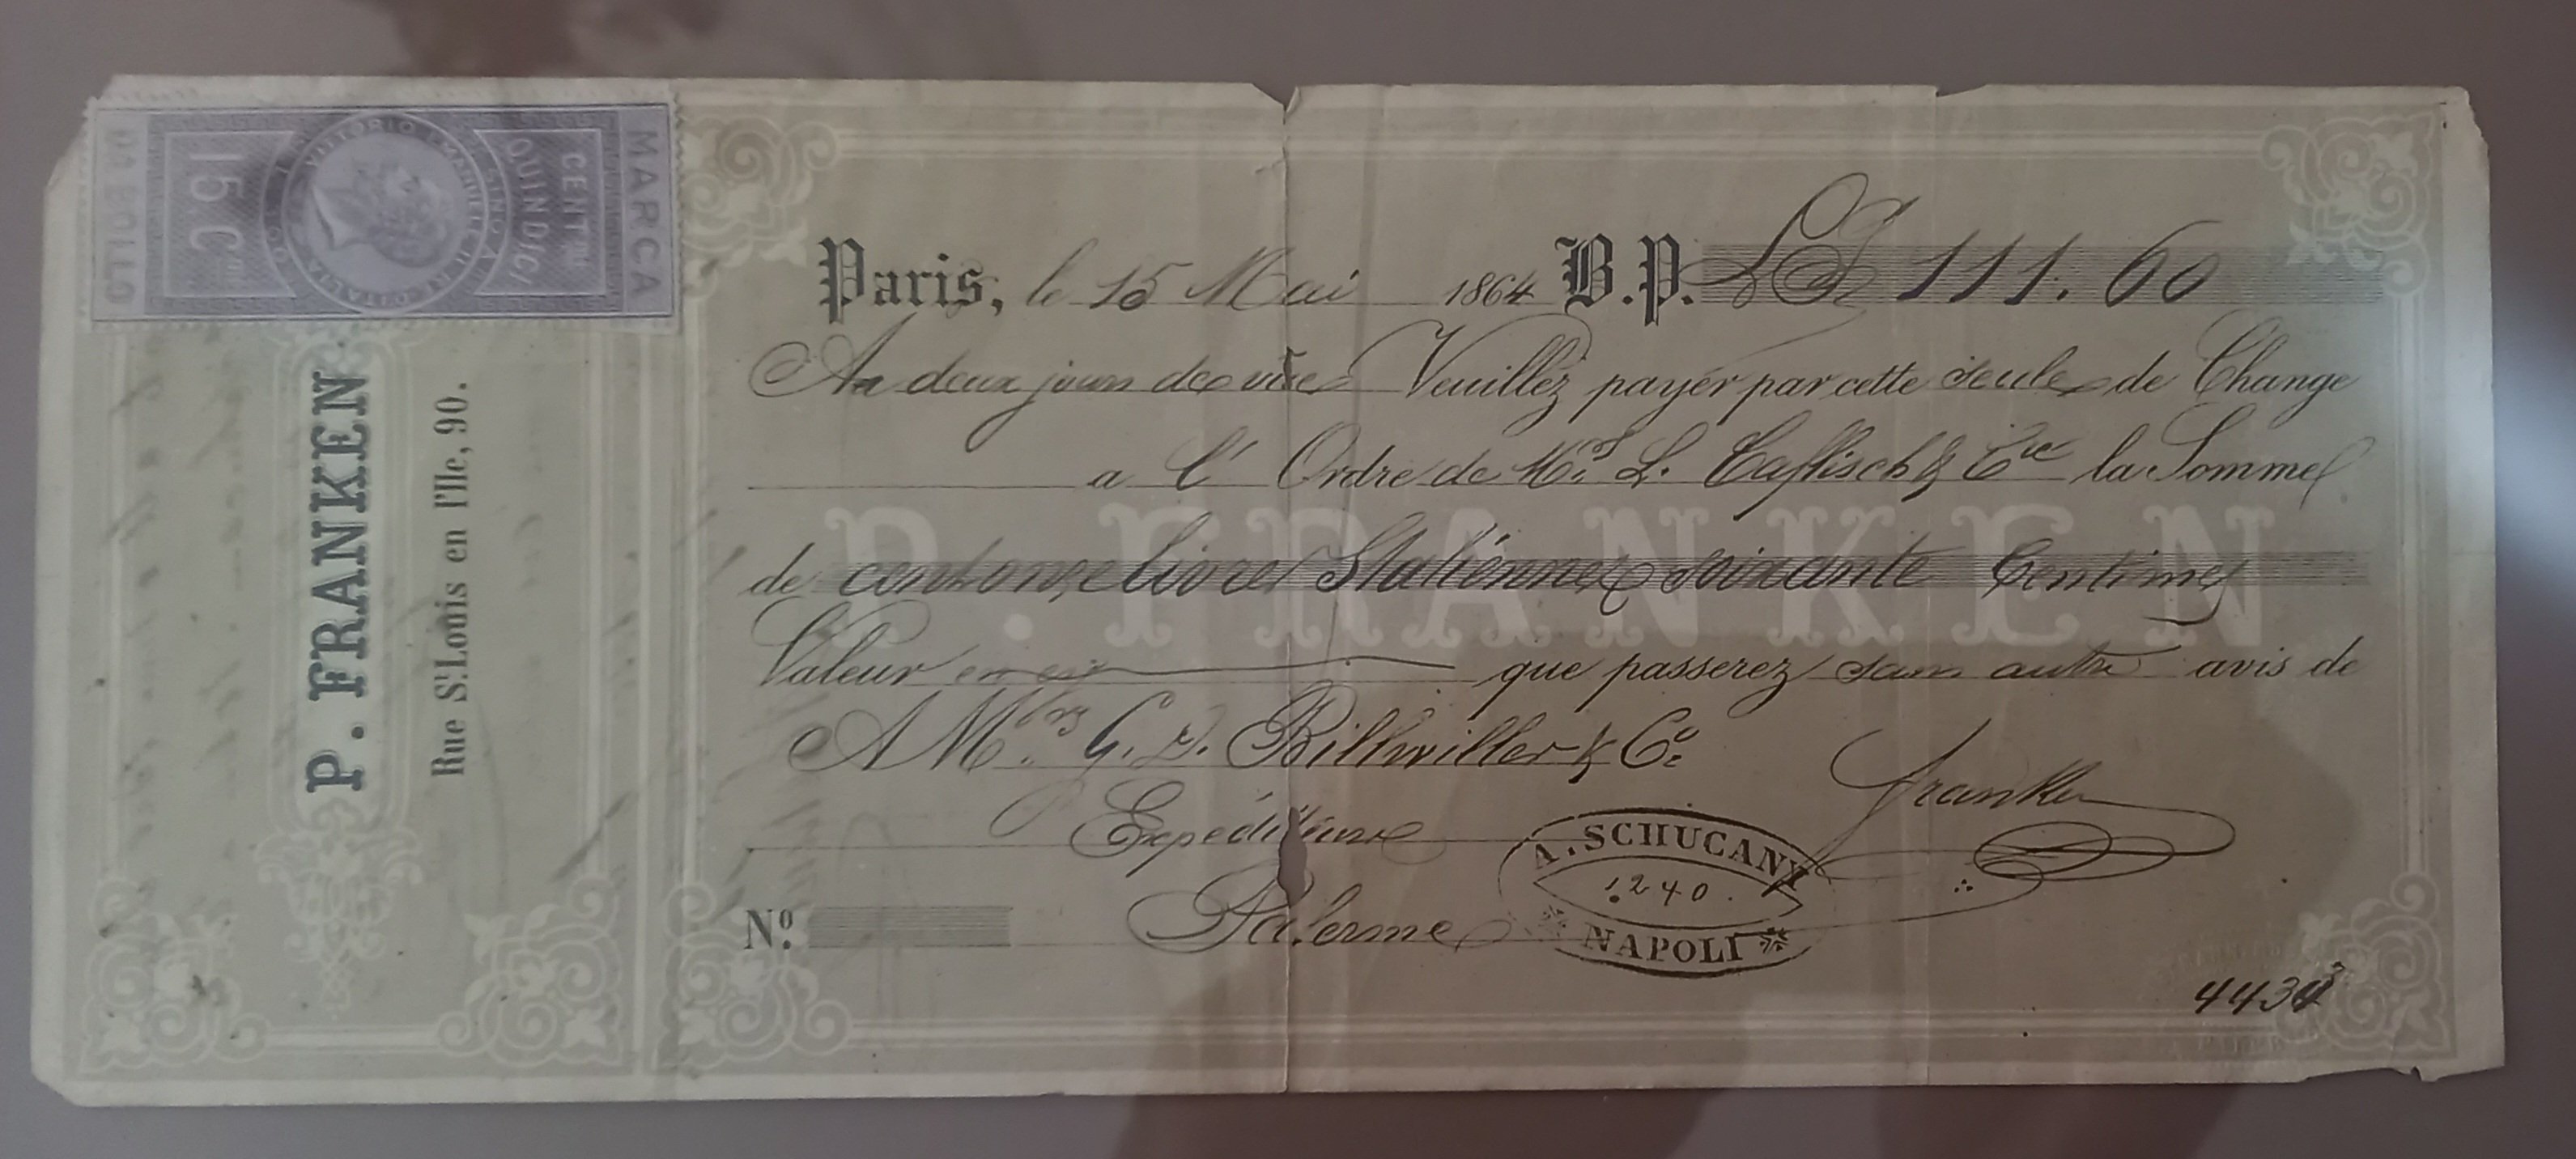 MARCA
DA BOLLO
CENT.MI
QUINDICI
15 C.mi
VITTORIO EMANUELE II RE D'ITALIA
P. FRANKEN
Rue St. Louis en l'Ile, 90.
Paris, le 15 Mai 1864 B.P. 111. 60
Au deux jours de vüe Veuillez payer par cette seule de Change
a l' Ordre de Mrs. L. Caflisch & Cie la Somme
P. FRANKEN
de cent onze livres Italiennes & soixante Centimes
Valeur en que passerez sans autre avis de
A Mrs. G. Billwiller & Co.
Franken
Expéditeurs
Palerme
A. SCHUCANY
1240.
NAPOLI
No.